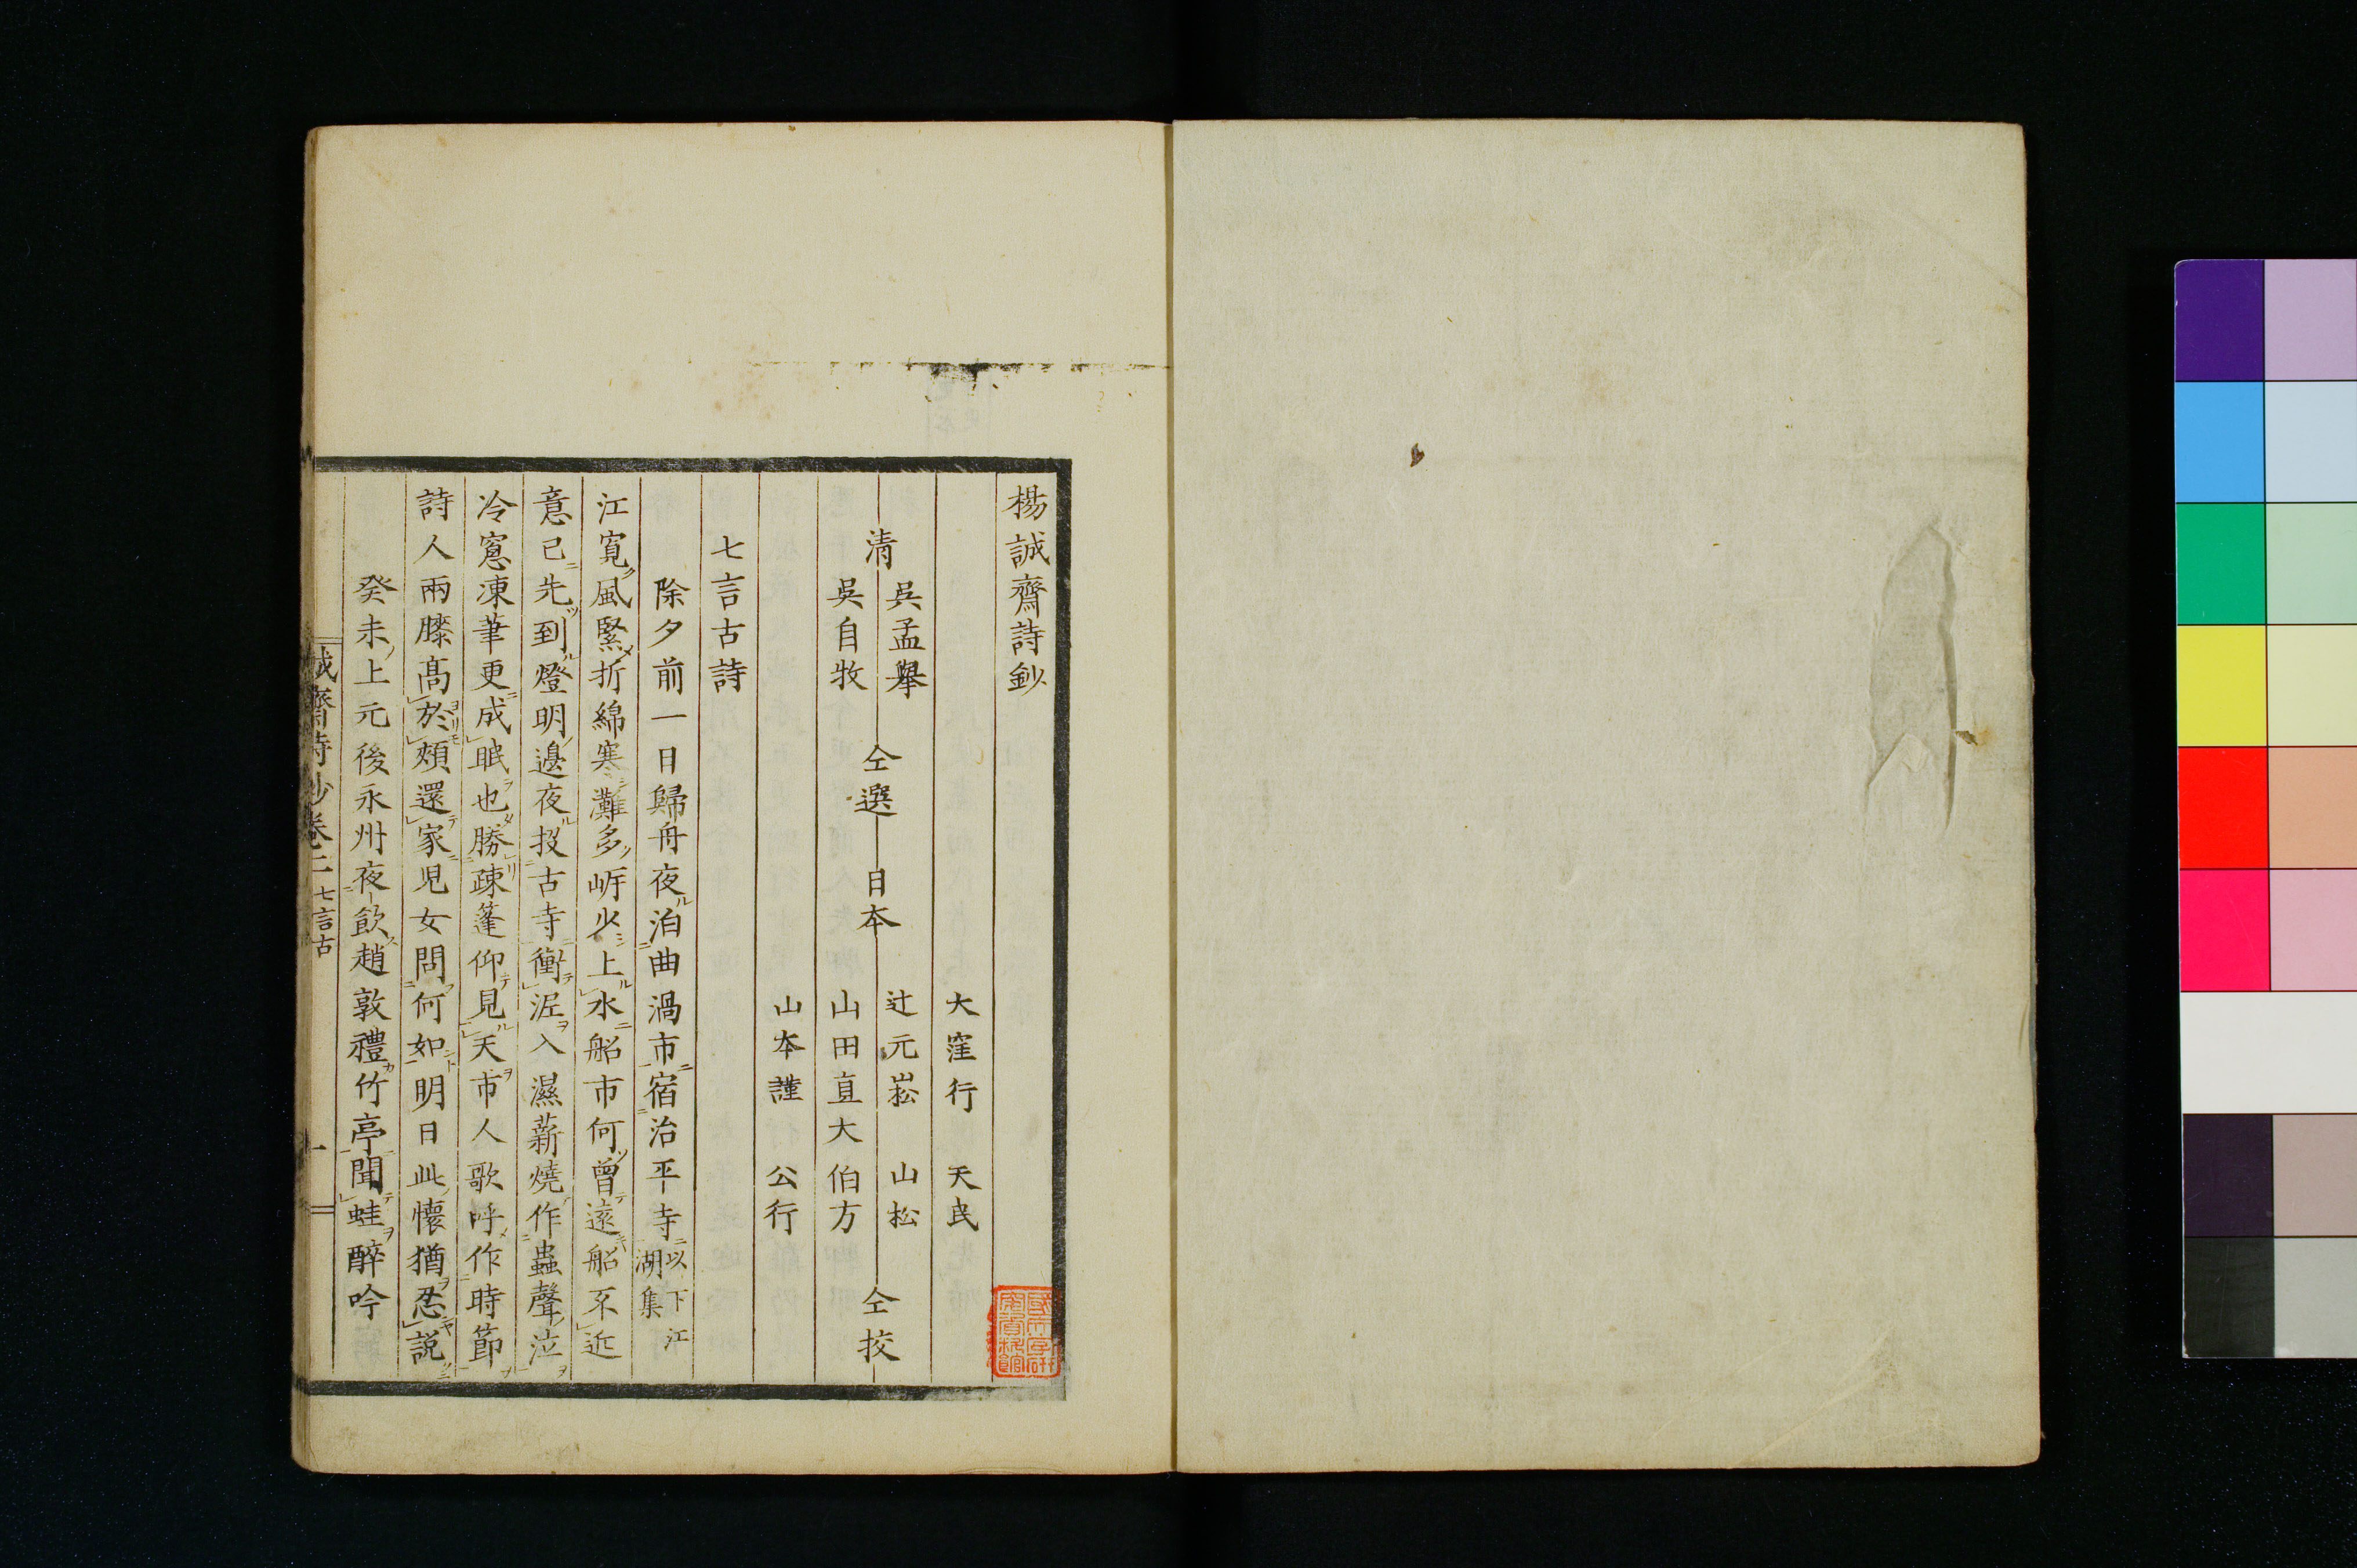 楊誠齋詩鈔
大窪行 天民
清 吳孟舉 仝選 日本 辻元崧 山松 仝挍
吳自牧 山田直大 伯方
山本謹 公行
七言古詩
除夕前一日歸舟夜泊曲渦市宿治平寺 以下江湖集
江寬風緊折綿寒灘多岍少上水船市何曾遠船不近
意已先到燈明邊夜投古寺衝泥入濕薪燒作蟲聲泣
冷窻凍筆更成眠也勝疎篷仰見天市人歌呼作時節
詩人兩膝高於頰還家児女問何如明日此懷猶忍說
癸未上元後永州夜飲趙敦禮竹亭聞蛙醉吟
誠齋詩鈔卷二 七言古 一